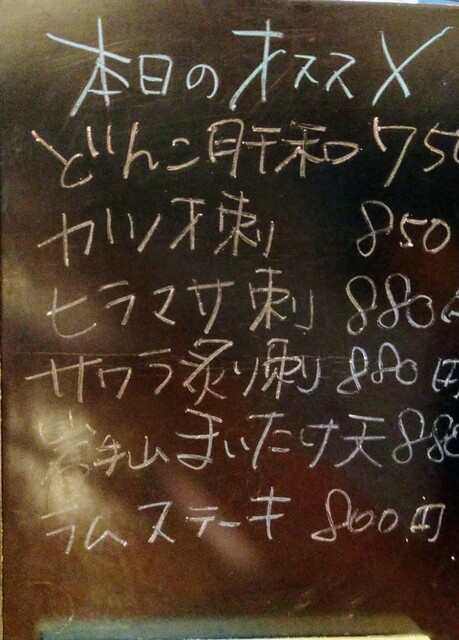 本日のオススメ
どんこ肝和 750
カツオ刺 850
ヒラマサ刺 880円
サワラ炙り刺 880円
まいたけ天 880
ラムステーキ 800円